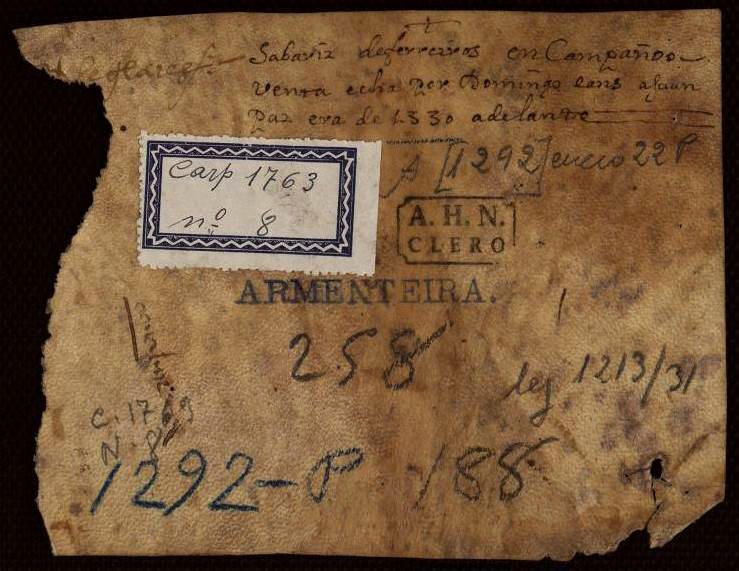 Sabariz deferreiros en Campañoo
Venta echa por Domingo eans a Juan
Paz era de 1330 adelante
A [1292] enero 22 P
Carp 1763
nº 8
A. H. N.
CLERO
ARMENTEIRA.
258
leg 1213/31
C. 1763
N. 8
1292-P 188